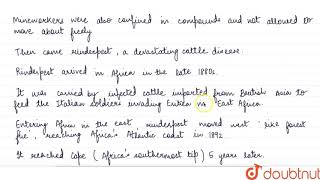 Mineworkers were also confined in compounds and not allowed to
move about freely
Then came rinderpest, a devastating cattle disease.
Rinderpest arrived in Africa in the late 1880s.
It was carried by infected cattle imported from British Asia to
feed the Italian soldiers invading Eritrea in East Africa
Entering Africa in the east, rinderpest moved west 'like forest
fire', reaching Africa's Atlantic coast in 1892
It reached Cape (Africa's southernmost tip) 5 years later.
doubtnut